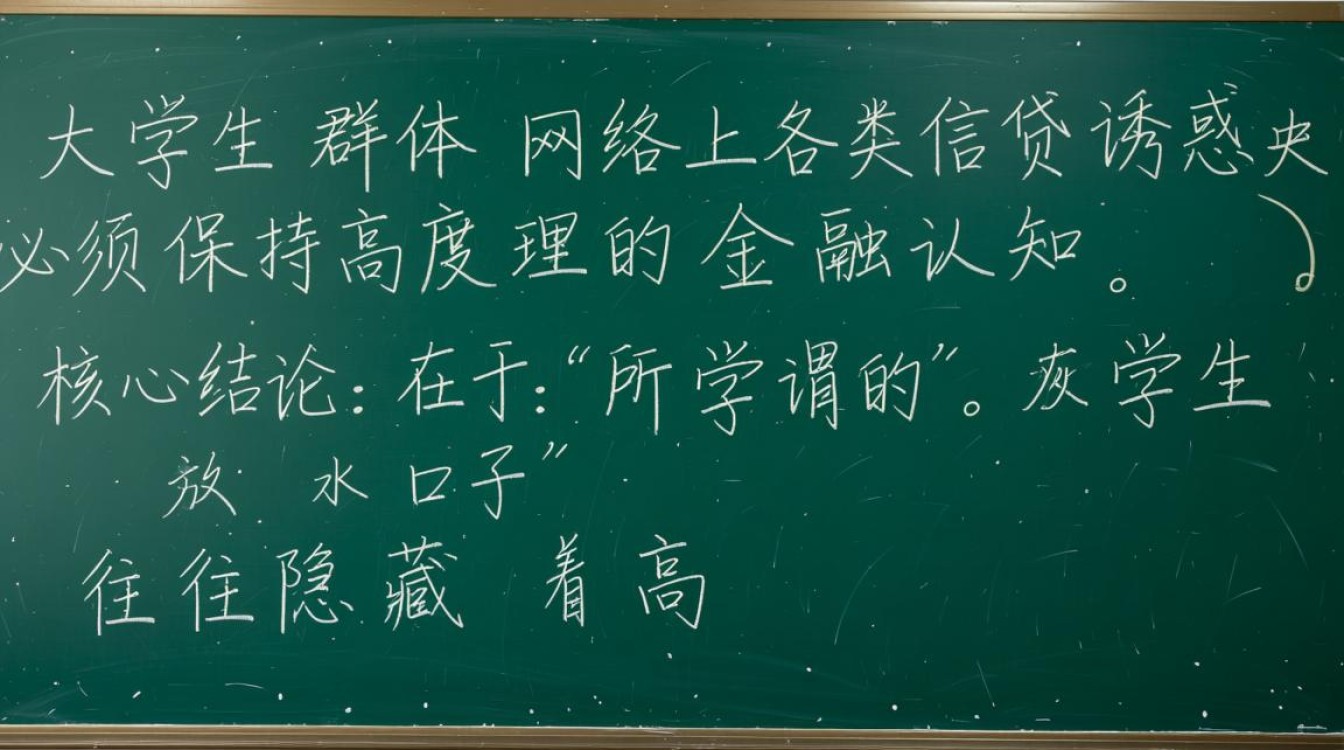 大学生 群体 网络上各类信贷诱惑央
必须保持高度理的金融认知。
核心结论：在于：“所学谓的”。灰学生
放 水口子”
往往隐藏 着高